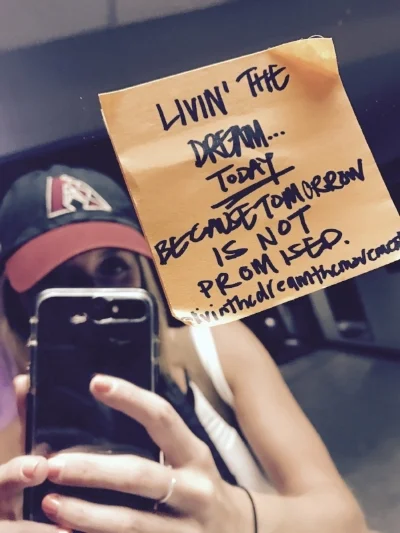 LIVIN' THE
DREAM...
TODAY
BECAUSE TOMORROW
IS NOT
PROMISED.
@livinthedreamthemovement